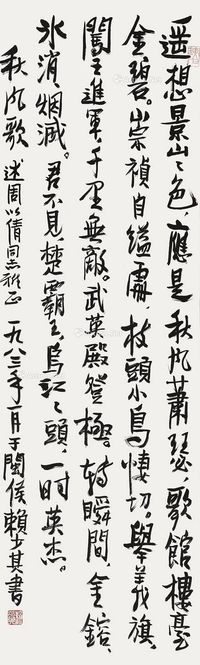 遥想景山山色，應是秋风萧瑟，歌館樓臺
金碧。崇禎自缢處，枝頭小鳥悽切。舉義旗，
闖王進軍，千里無敵。武英殿登極。转瞬間，金鎔、
冰消、烟滅。君不見，楚霸王，烏江江頭，一时英杰。
秋风歌 述周以倩同志雅正 一九八三年一月于閩侯 賴少其書